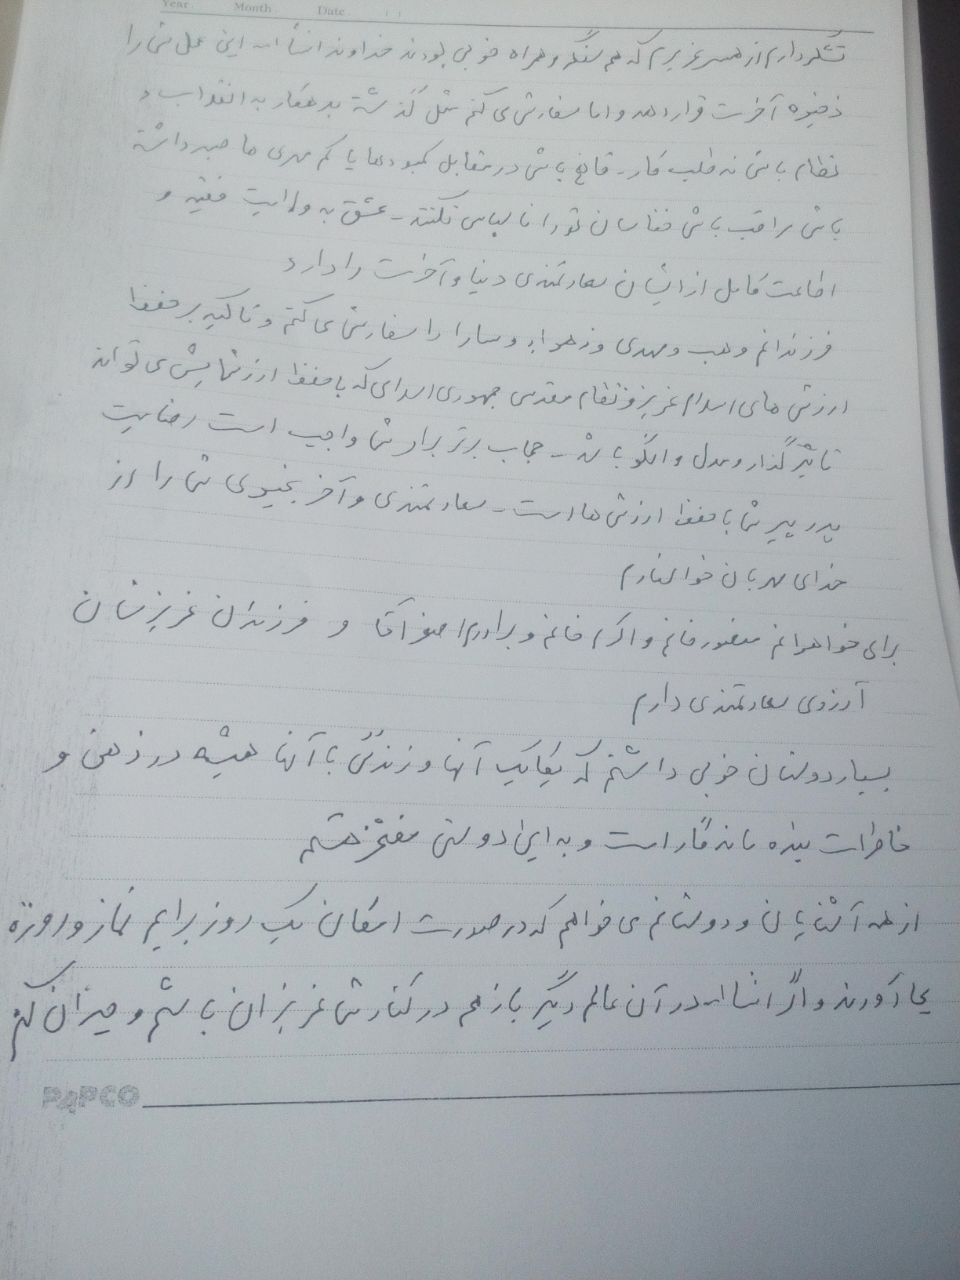 Year. Month. Date. / /
تشکر دارم از همسر عزیزم که هم سنگر و همراه خوبی بودند خداوند انشأ اله این عمل شما را
ذخیره آخرت قرار دهد و اما سفارش می کنم مثل گذشته بدهکار به انقلاب و
نظام باش نه طلب کار - قانع باش در مقابل کمبودها یا کم مهری ها صبر داشته
باش مراقب باش خناسان تو را نا سپاس نکنند - عشق به ولایت فقیه و
اطاعت کامل از ایشان سعادتمندی دنیا و آخرت را دارد
فرزندانم وهب و مهدی و زهرا و سارا را سفارش می کنم و تاکید بر حفظ
ارزش های اسلام عزیز و نظام مقدس جمهوری اسلامی که با حفظ ارزشهایش می تواند
تاثیر گذار و مدل و الگو باشد - حجاب برتر برای شما واجب است رضایت
پدر پیر شما با حفظ ارزش ها است - سعادتمندی و آخر بخیری شما را از
خدای مهربان خواستارم
برای خواهرانم منصوره خانم و اکرم خانم و برادرم اصغر آقا و فرزندان عزیزشان
آرزوی سعادتمندی دارم
بسیار دوستان خوبی داشتم که یکایک آنها و زندگی با آنها همیشه در ذهن و
خاطرات بنده ماندگار است و به این دوستی مفتخر هستم
از همه آشنایان و دوستانم می خواهم که در صورت امکان یک روز برایم نماز و روزه
بجا آورند و اگر انشا اله در آن عالم دیگر باز هم در کنار شما عزیزان باشم و جبران کنم
PAPCO